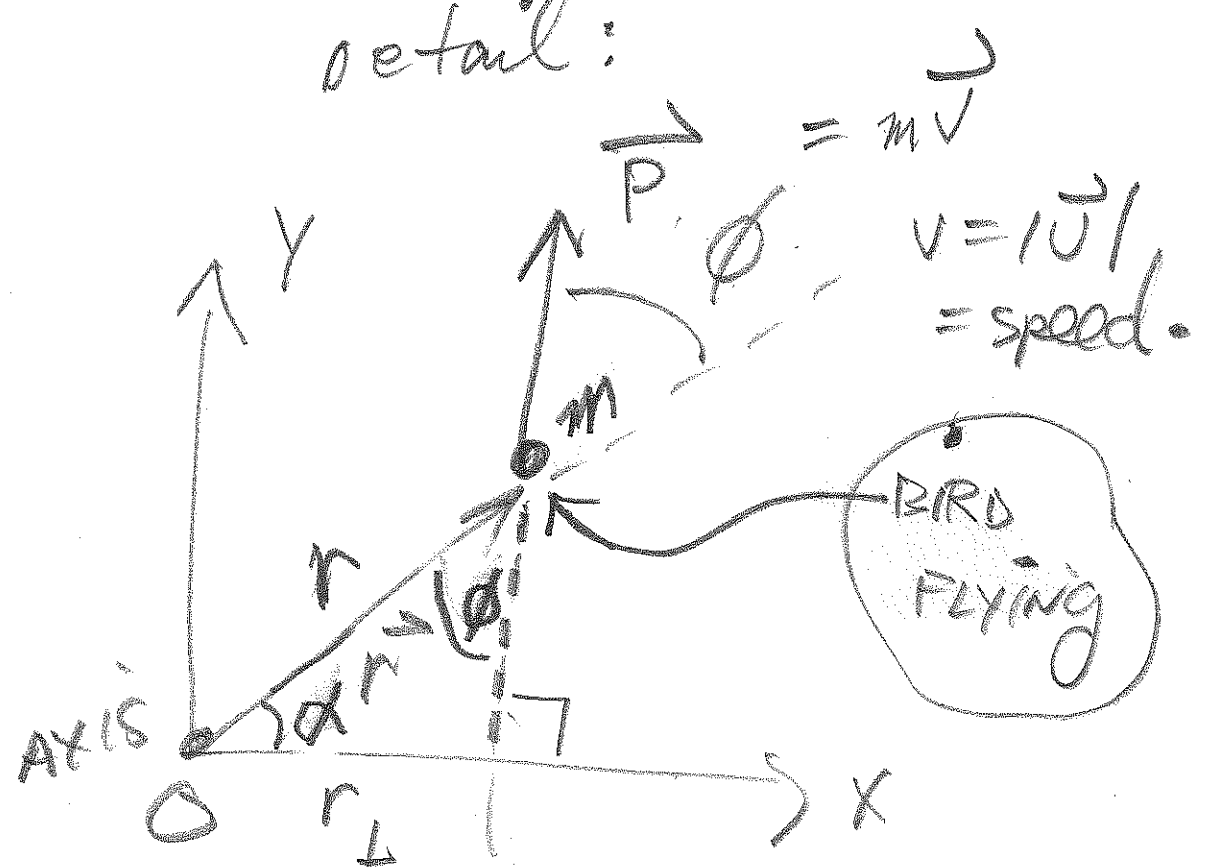 Detail:
P⃗ = mv⃗
Y
φ
v = |v⃗|
= speed.
m
BIRD
FLYING
r
φ
r⃗
α
AXIS
O
r⊥
X